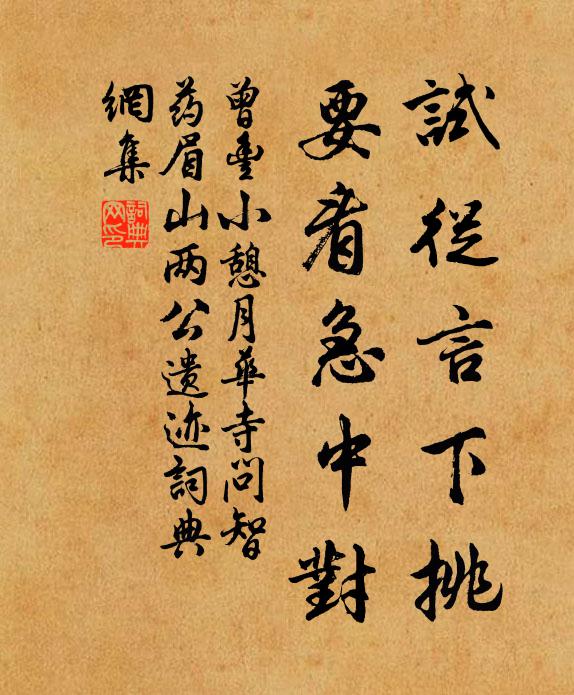 試從言下挑
要看急中對
曾豐小憩月華寺問智
药眉山两公遗迹詞典
網集
詞典
网印